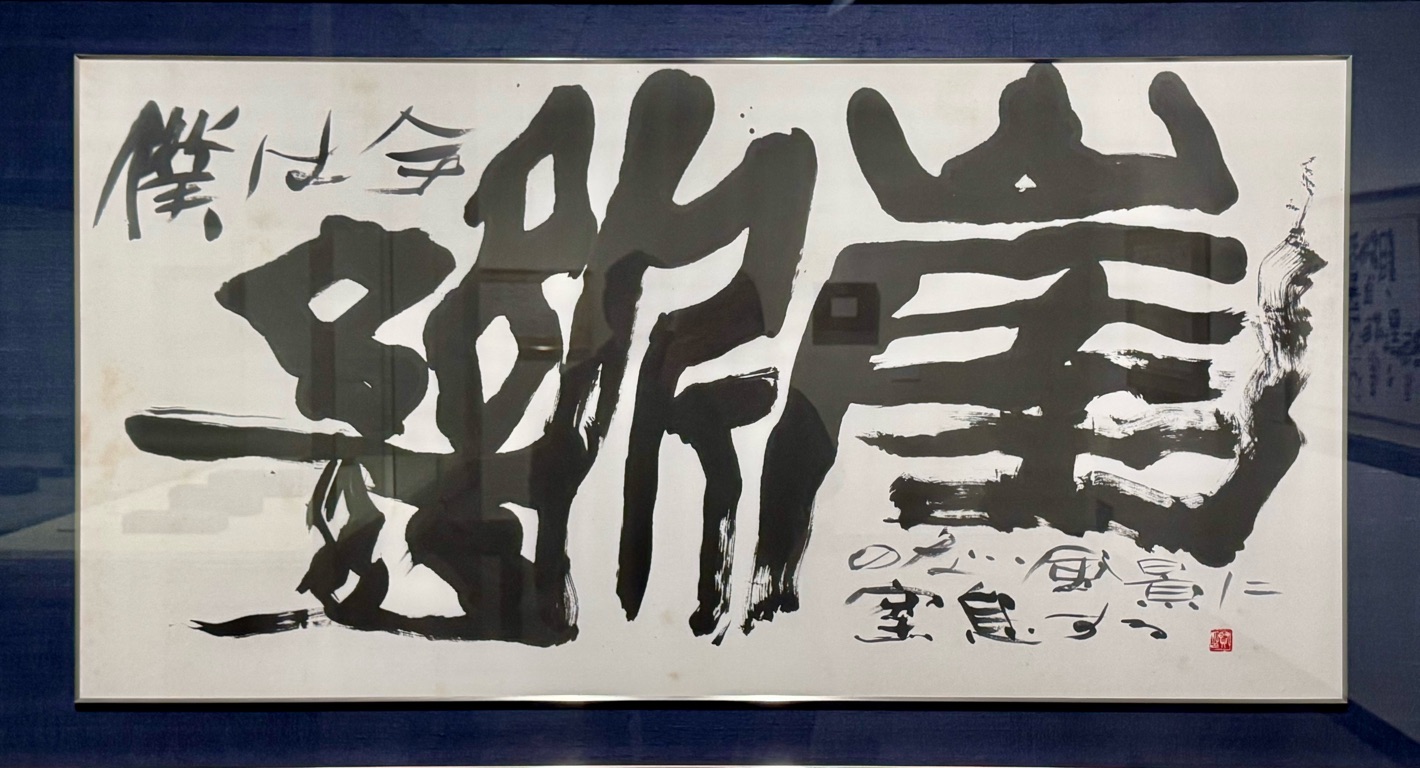 僕は今
斷崖
のない風景に
窒息する